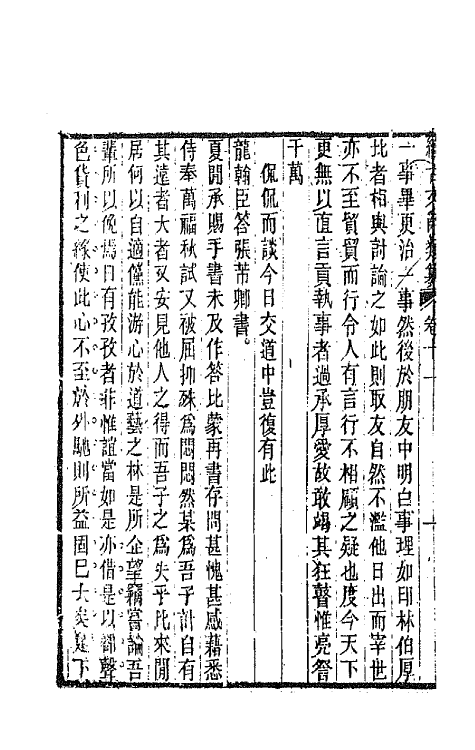 續古文辭類纂 卷十一
一事畢更治一事然後於朋友中明白事理如印林伯厚
比者相與討論之如此則取友自然不濫他日出而宰世
亦不至貿貿而行令人有言行不相顧之疑也度今天下
更無以直言貢執事者過承厚愛故敢竭其狂瞽惟亮詧
千萬
侃侃而談今日交道中豈復有此
龍翰臣答張芾卿書。
夏閒承賜手書未及作答比蒙再書存問甚愧甚感藉悉
侍奉萬福秋試又被屈抑殊為悶悶然某為吾子計自有
其遠者大者又安見他人之得而吾子之為失乎比來閒
居何以自適僅能游心於道藝之林是所企望竊嘗論吾
輩所以俛焉日有孜孜者非惟誼當如是亦借是以卻聲
色貨利之緣使此心不至於外馳則所益固已大矣